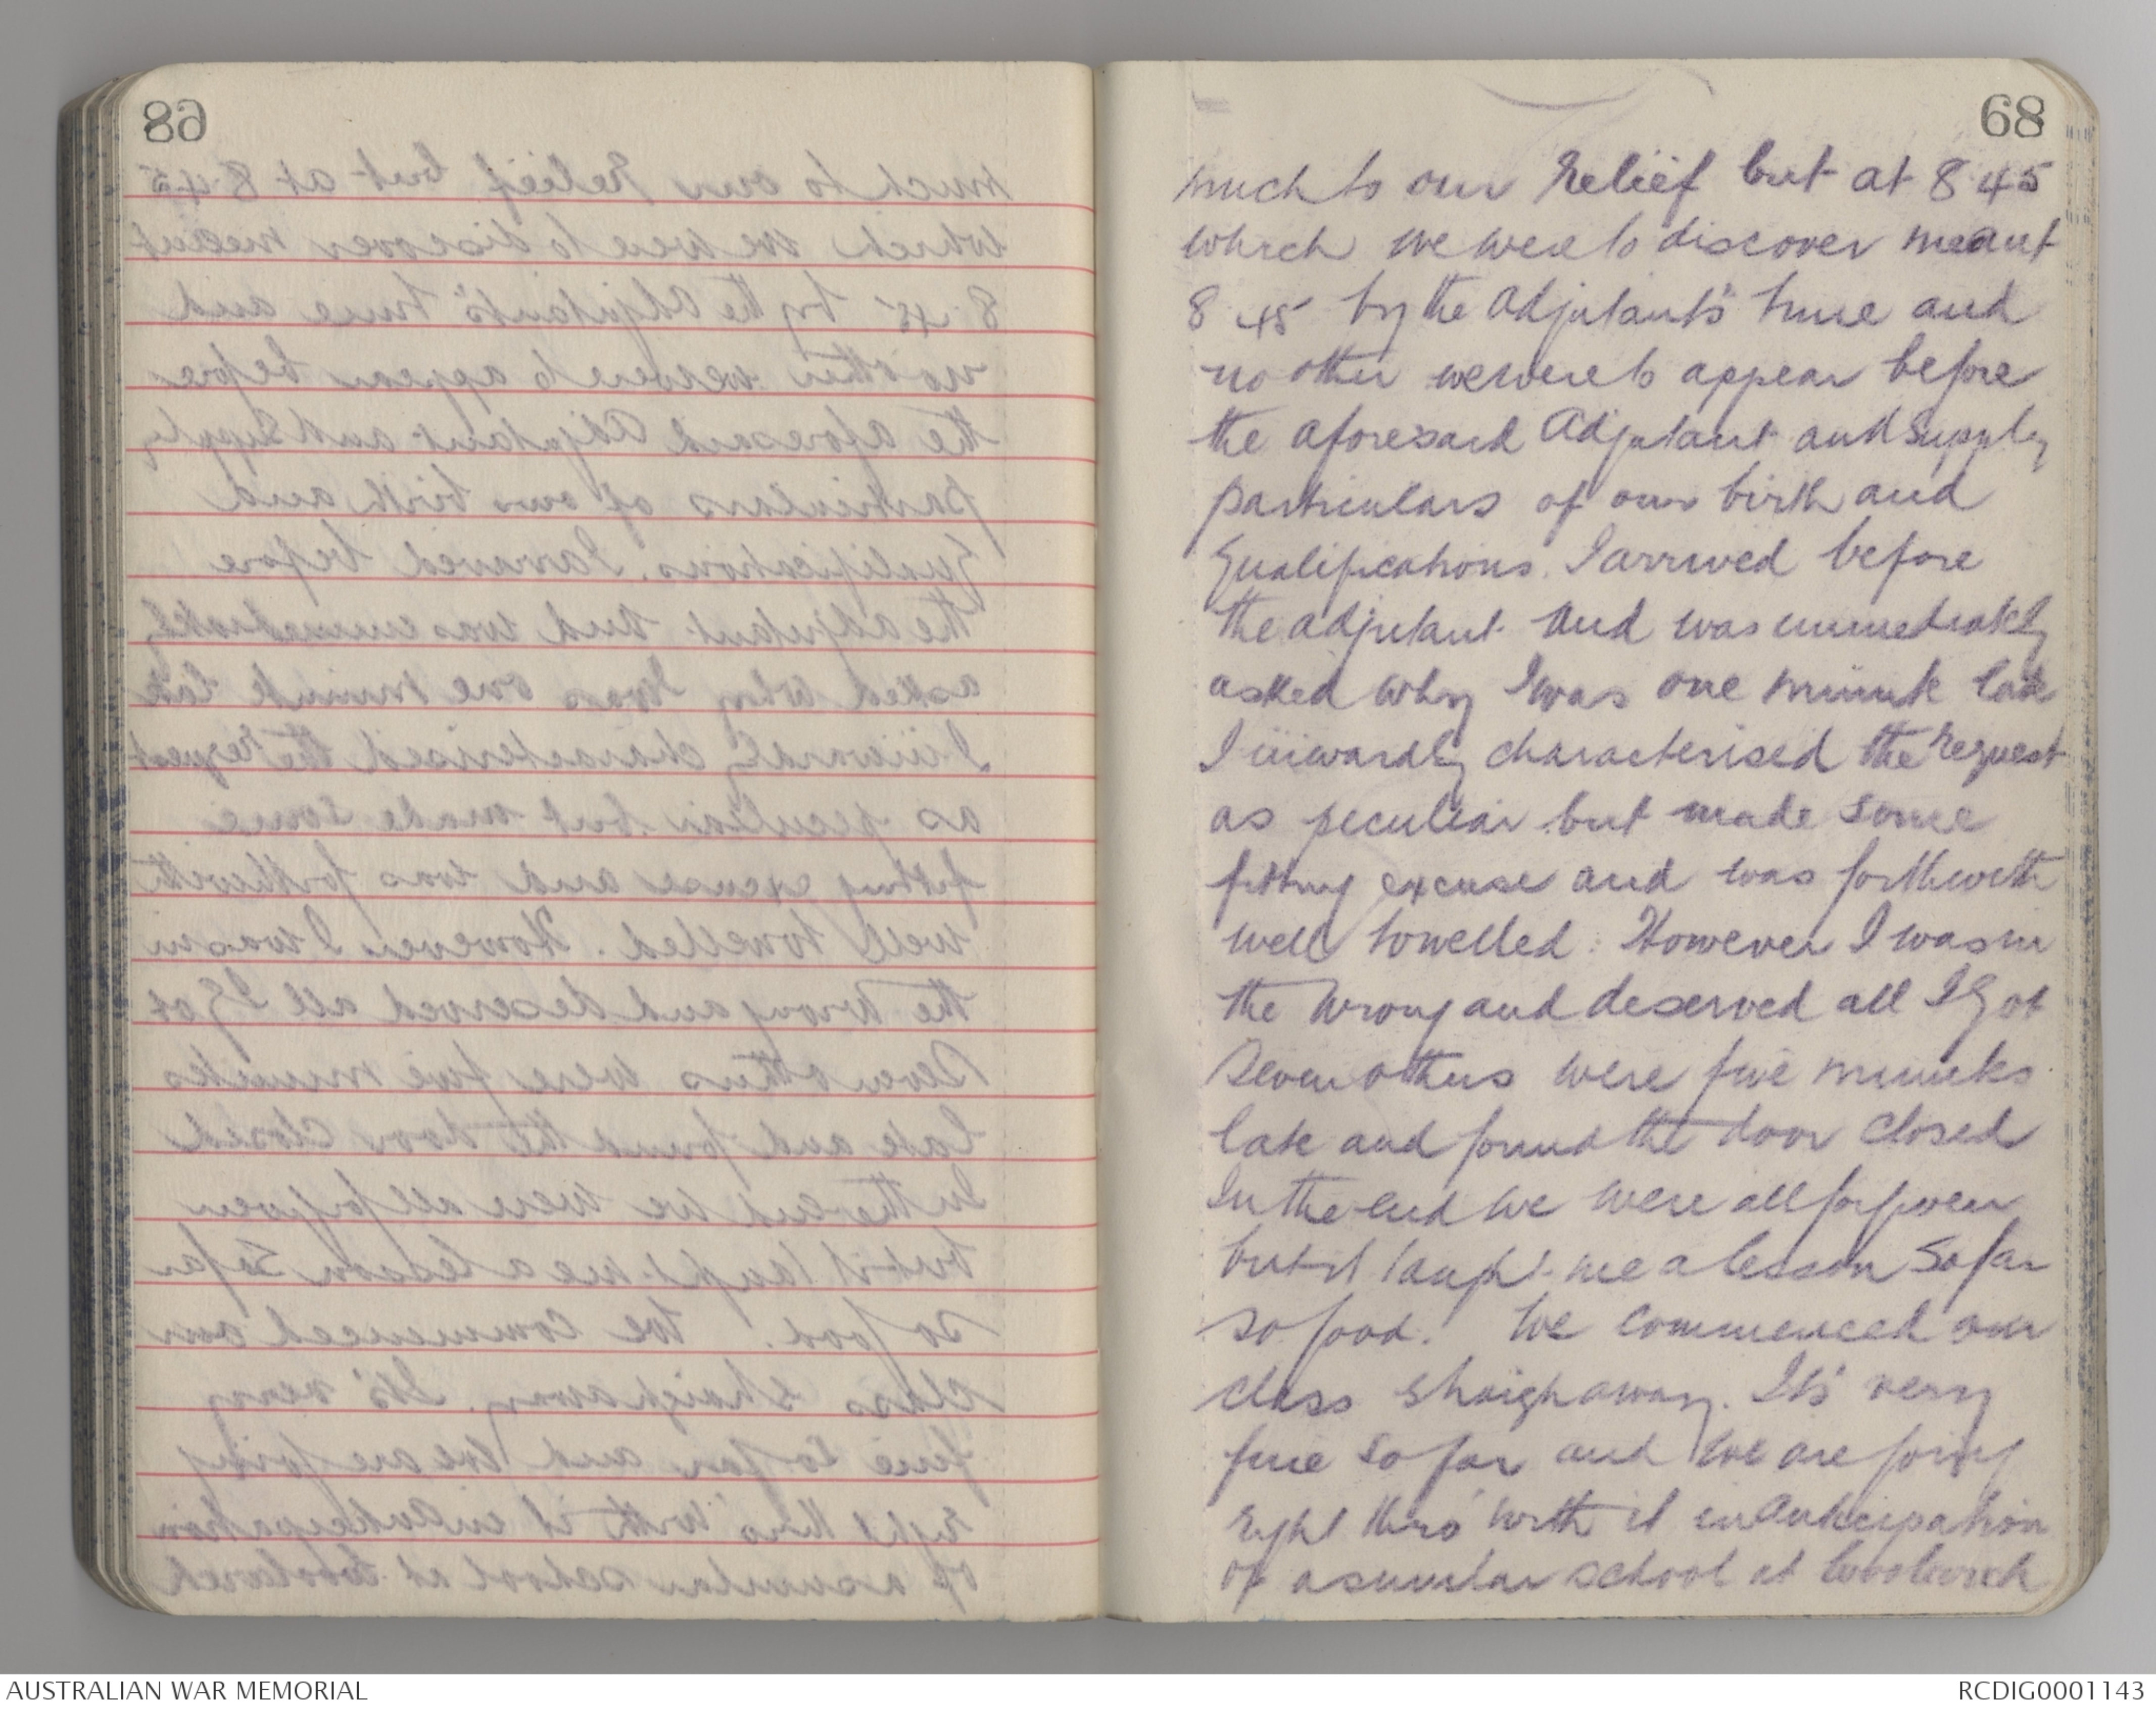 68
much to our relief but at 8.45
which we were to discover meant
8.45 by the Adjutant's time and
no other we were to appear before
the aforesaid Adjutant and supply
particulars of our birth and
Qualifications. I arrived before
the adjutant and was immediately
asked why I was one minute late
I inwardly characterised the request
as peculiar but made some
fitting excuse and was forthwith
well towelled. However I was in
the wrong and deserved all I got
Seven others were five minutes
late and found the door closed
In the end we were all forgiven
but it taught me a lesson so far
so good. We commenced our
class straighaway. It's very
fine so far and we are going
right thro' with it in anticipation
of a similar school at Woolwich
AUSTRALIAN WAR MEMORIAL
RCDIG0001143